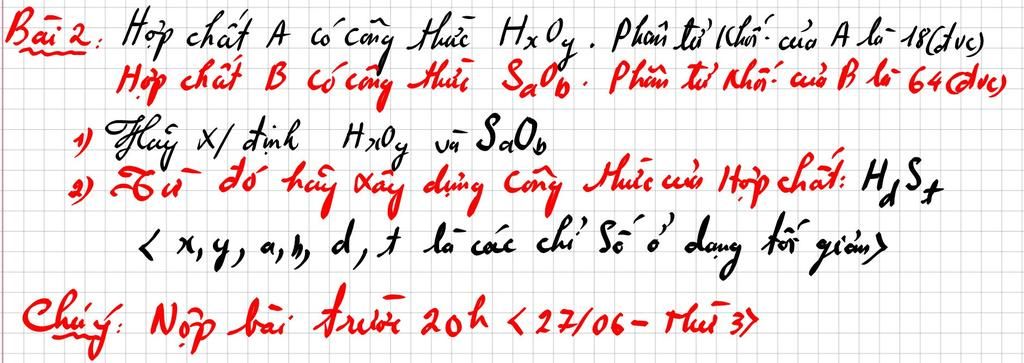 Bài 2: Hợp chất A có công thức HxOy. Phân tử khối của A là 18(đvc)
Hợp chất B có công thức SaOb. Phân tử khối của B là 64(đvc)
1) Hãy x/định HxOy và SaOb
2) Từ đó hãy xây dựng công thức của Hợp chất: HdSt
< x, y, a, b, d, t là các chỉ số ở dạng tối giản>
Chú ý: Nộp bài trước 20h <27/06 - Thứ 3>